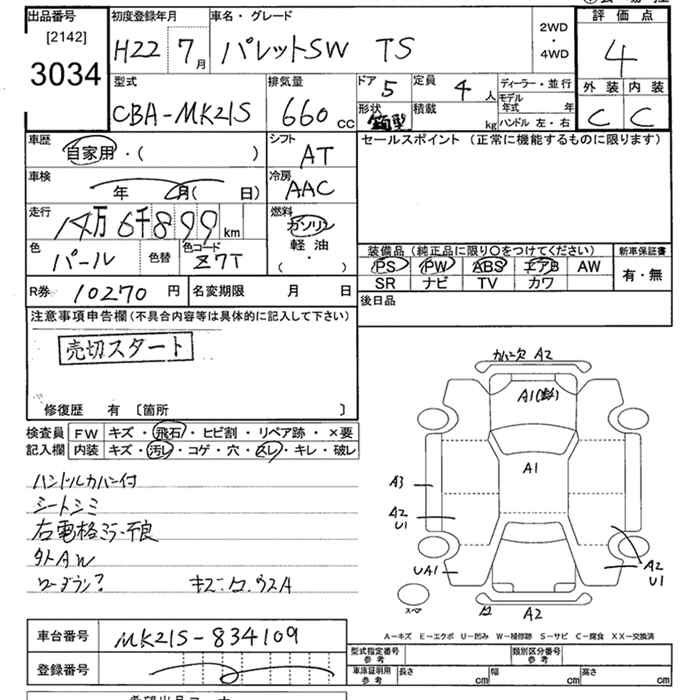 出品番号
[2142]
3034
初度登録年月
H22 7月
車名・グレード
パレットSW TS
2WD
・
4WD
評価点
4
型式
CBA-MK21S
排気量
660 cc
ドア 5
定員 4 人
形状 箱型
積載 kg
ディーラー・並行
モデル年式 年
ハンドル 左・右
外装 内装
C C
車歴
自家用・( )
シフト
AT
セールスポイント (正常に機能するものに限ります)
車検
年 月( 日)
冷房
AAC
走行
14万6千899 km
燃料
ガソリン
軽油
( ・ )
色
パール
色替
色コード
Z7T
装備品 (純正品に限り〇をつけてください)
PS PW ABS エアB AW
SR ナビ TV カワ
新車保証書
有・無
R券 10270 円
名変期限 月 日
後日品
注意事項申告欄(不具合内容等は具体的に記入して下さい)
売切スタート
修復歴 有 〔箇所 〕
検査員
記入欄
FW キズ・飛石・ヒビ割・リペア跡・×要
内装 キズ・汚レ・コゲ・穴・スレ・キレ・破レ
ハンドルカバー付
シートシミ
右電格ミラー不良
外AW
キズ・凹・ウスA
カバー欠 A2
A1
A1
A3
A2
U1
UA1
A2
U1
A2
スペア
A-キズ E-エクボ U-凹み W-補修跡 S-サビ C-腐食 XX-交換済
車台番号 MK21S-834109
登録番号
型式指定番号
参考
類別区分番号
参考
車庫証明用
参考
長さ cm
幅 cm
高さ cm